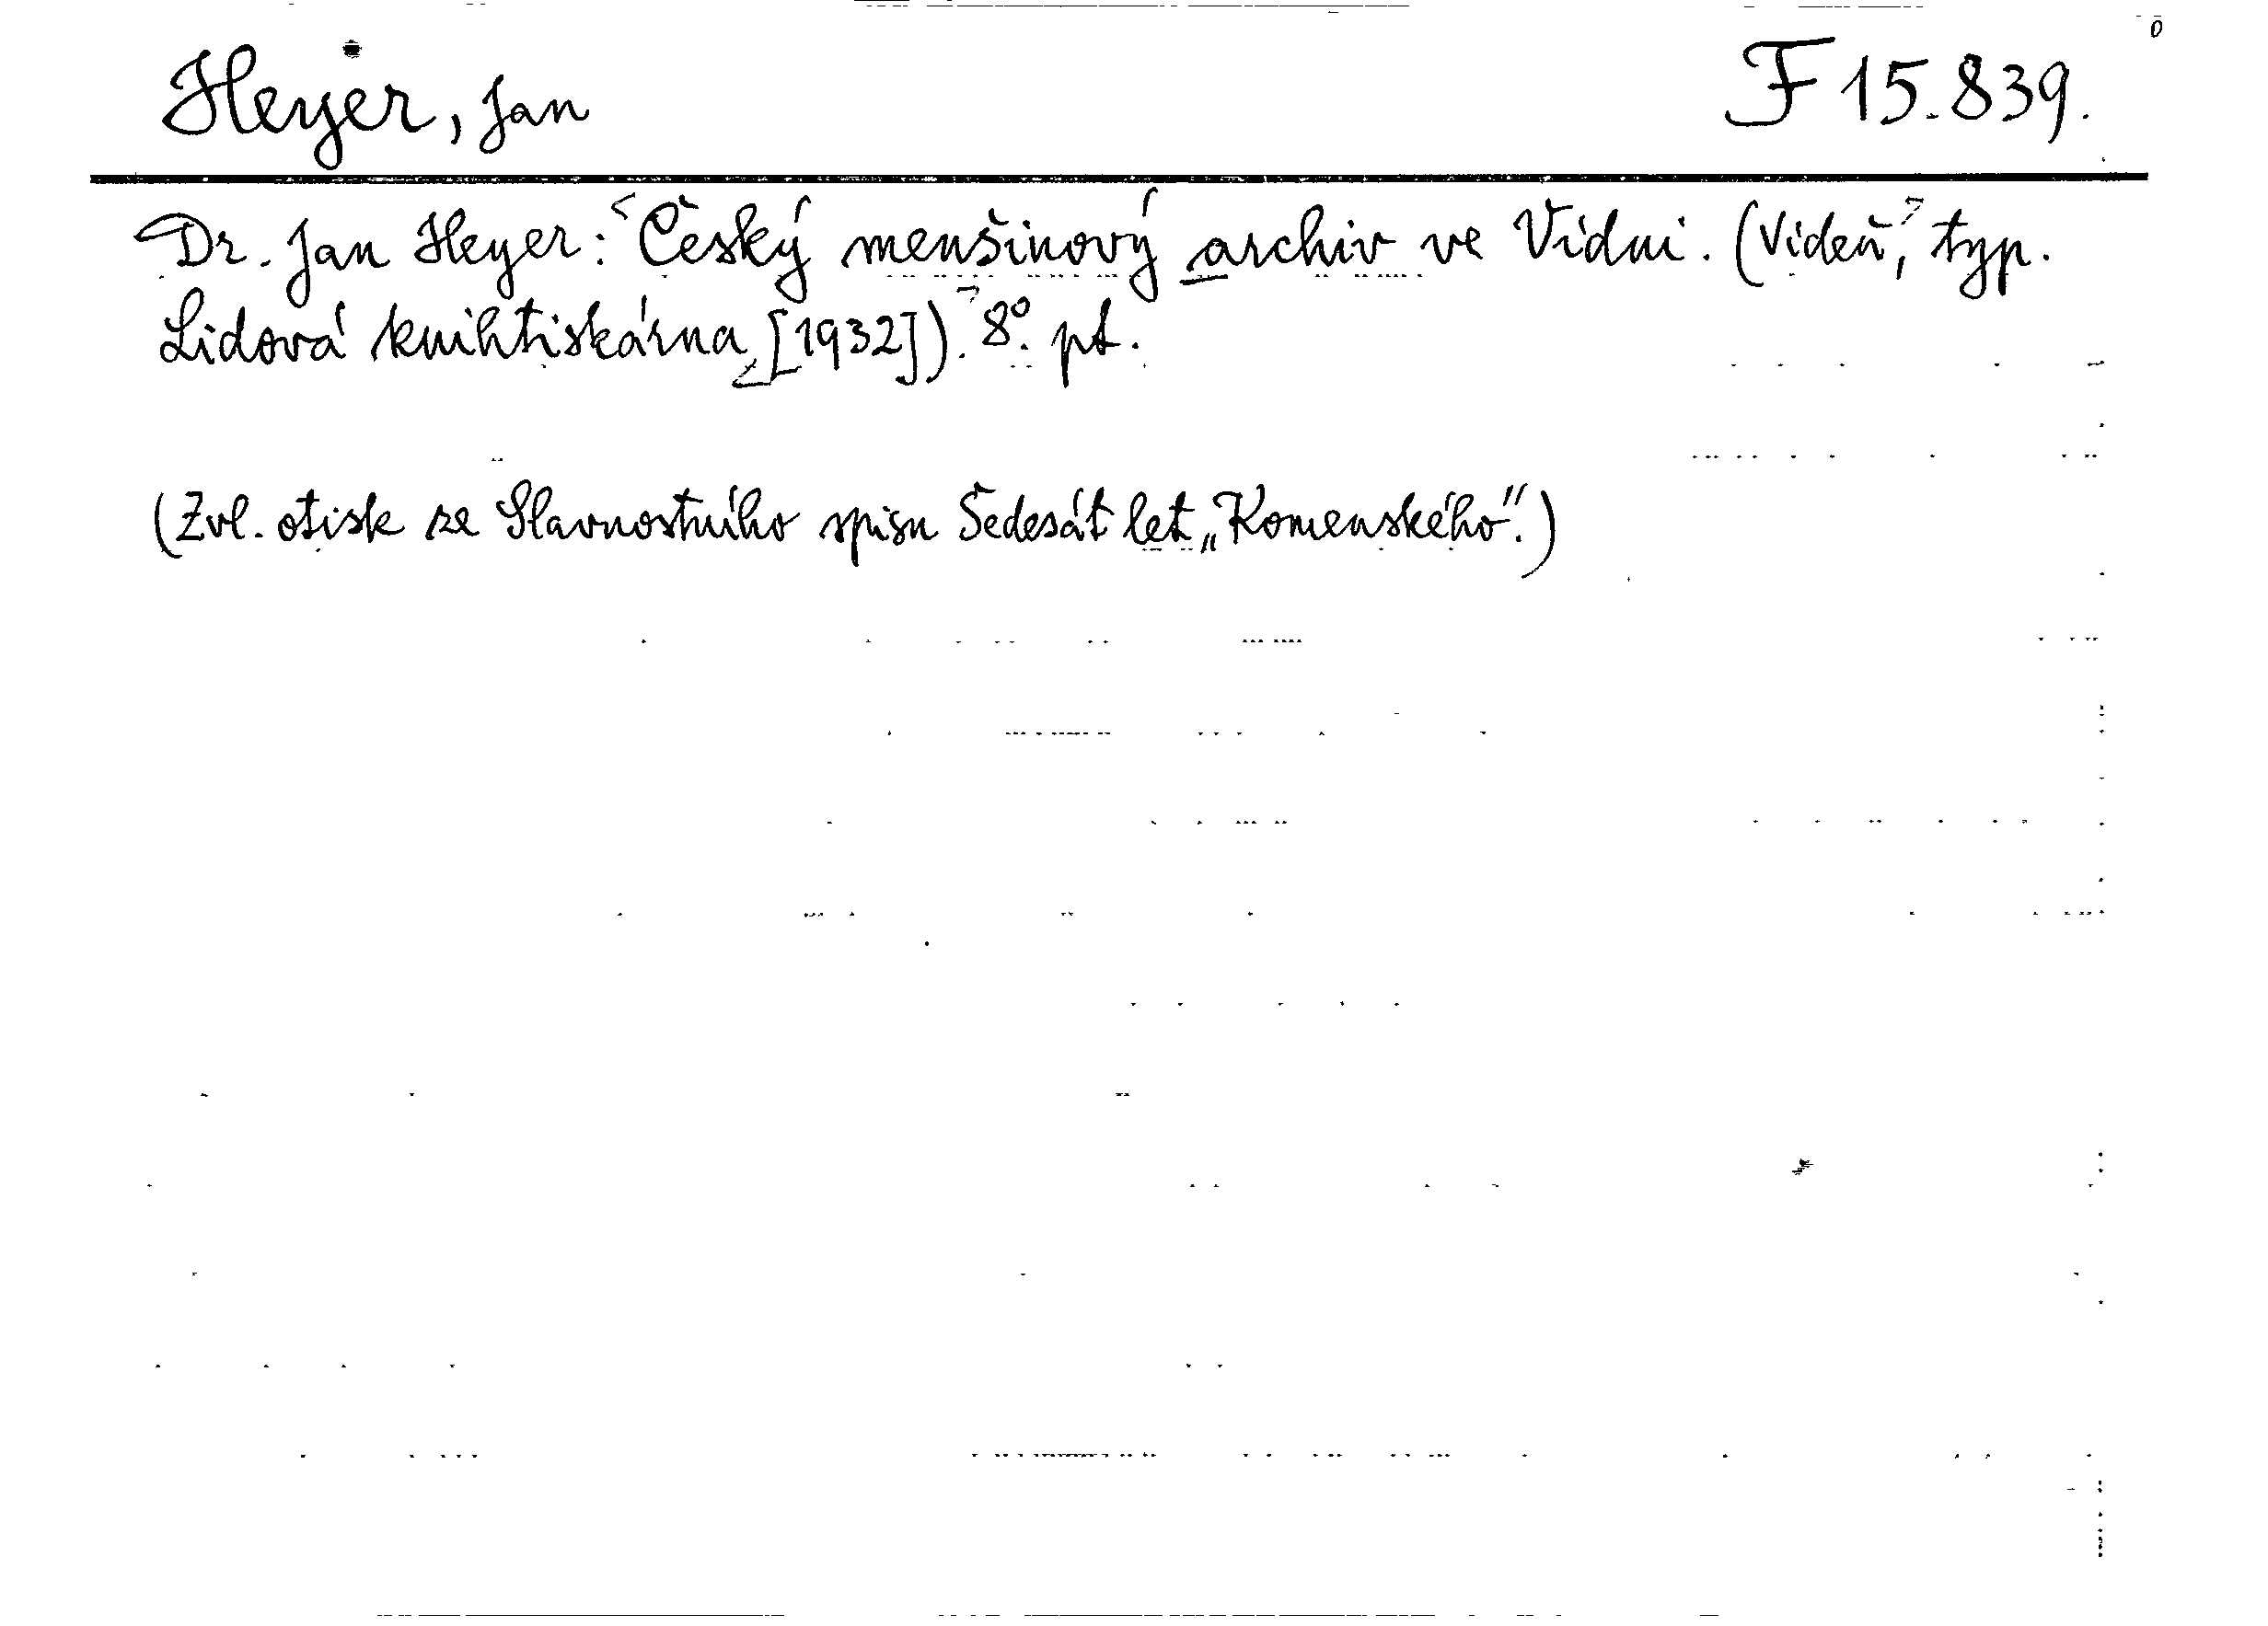 Heyer, Jan F 15.839.
Dr. Jan Heyer: Český menšinový archiv ve Vídni. (Vídeň, typ.
Lidová knihtiskárna [1932]). 8°. pt.
(Zvl. otisk ze Slavnostního spisu Šedesát let „Komenského“.)